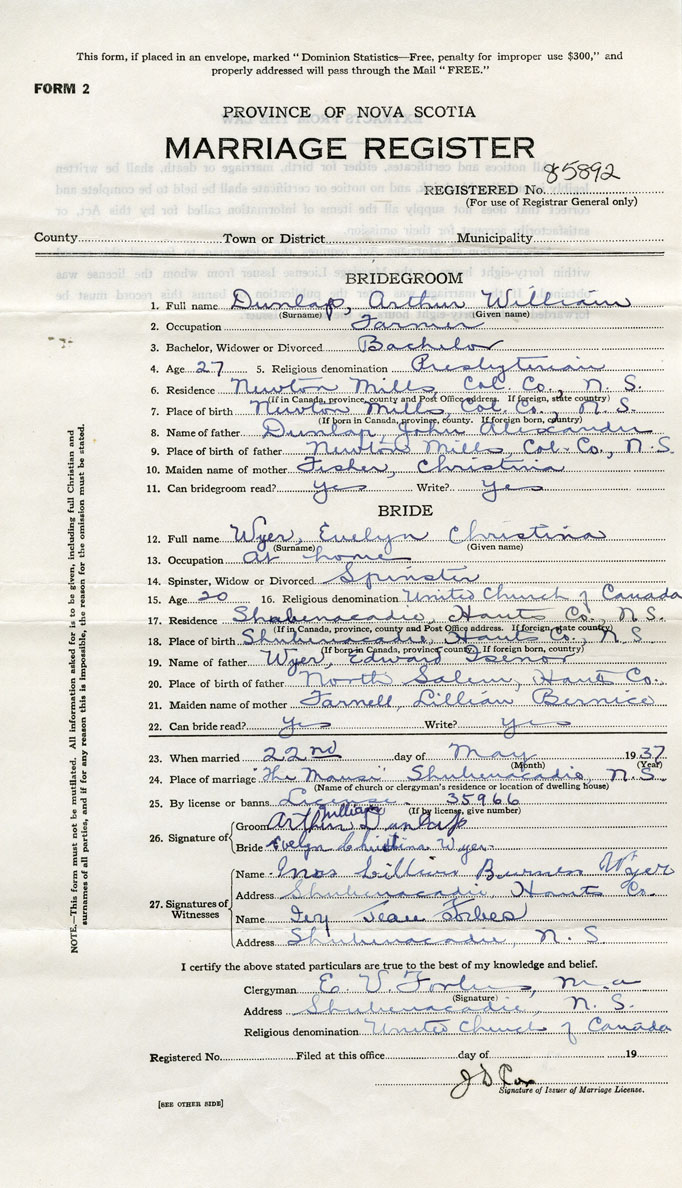 This form, if placed in an envelope, marked "Dominion Statistics—Free, penalty for improper use $300," and
properly addressed will pass through the Mail "FREE."
FORM 2
PROVINCE OF NOVA SCOTIA
MARRIAGE REGISTER
REGISTERED No. 85892
(For use of Registrar General only)
County Town or District Municipality
BRIDEGROOM
1. Full name Dunlap, Arthur William
(Surname) (Given name)
2. Occupation Farmer
3. Bachelor, Widower or Divorced Bachelor
4. Age 27 5. Religious denomination Presbyterian
6. Residence Newton Mills, Col. Co., N. S.
(If in Canada, province, county and Post Office address. If foreign, state country)
7. Place of birth Newton Mills, Col. Co., N. S.
(If born in Canada, province, county. If foreign born, country)
8. Name of father Dunlap, John Alexander
9. Place of birth of father Newton Mills, Col. Co., N.S.
10. Maiden name of mother Fisher, Christina
11. Can bridegroom read? yes Write? yes
BRIDE
12. Full name Wyer, Evelyn Christina
(Surname) (Given name)
13. Occupation at home
14. Spinster, Widow or Divorced Spinster
15. Age 20 16. Religious denomination United Church of Canada
17. Residence Shubenacadie, Hants Co., N.S.
(If in Canada, province, county and Post Office address. If foreign state country)
18. Place of birth Shubenacadie, Hants Co., N S
(If born in Canada, province, county. If foreign born, country)
19. Name of father Wyer, Edward Isenor
20. Place of birth of father North Salem, Hants Co.
21. Maiden name of mother Farnell, Lillian Bernice
22. Can bride read? yes Write? yes
23. When married 22nd day of May 1937
(Month) (Year)
24. Place of marriage "The Manse" Shubenacadie, N.S.
(Name of church or clergyman's residence or location of dwelling house)
25. By license or banns License 35966
(If by license, give number)
26. Signature of Groom Arthur William Dunlap
Bride Evelyn Christina Wyer
27. Signatures of Witnesses
Name Lillian Wyer
Address Shubenacadie Hants Co.
Name Ivy Jean Forbes
Address Shubenacadie, N. S.
I certify the above stated particulars are true to the best of my knowledge and belief.
Clergyman E. V. Forbes, M.A
(Signature)
Address Shubenacadie, N. S.
Religious denomination United Church of Canada
Registered No. Filed at this office day of 19
J D Cox
Signature of Issuer of Marriage License.
[SEE OTHER SIDE]
NOTE.—This form must not be mutilated. All information asked for is to be given, including full Christian and
surnames of all parties, and if for any reason this is impossible, the reason for the omission must be stated.